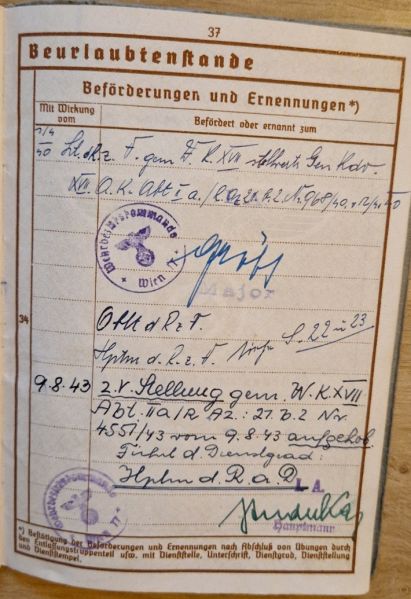 37
Beurlaubtenstande
Beförderungen und Ernennungen*)
Mit Wirkung vom
Befördert oder ernannt zum
1/4
40 Lt. d.R.z.V. gem W.K. XVII stellvertr. Gen Kdo.
XVII. A.K. Abt IIa/
Wehrbezirkskommando
Wien
Major
34
Oblt d R z V.
Hptm d. R. z. V. siehe S. 22 u 23
9.8.43 z.V. Stellung gem. W.K XVII
Abt. IIa/R Az.: 21.b.2 Nr
4551/43 vom 9.8.43 aufgehob.
Führt d. Dienstgrad:
Hptm d. R. a. D.
I. A.
Hauptmann
*) Bestätigung der Beförderungen und Ernennungen nach Abschluß von Übungen durch
den Entlassungstruppenteil usw. mit Dienststelle, Unterschrift, Dienstgrad, Dienststellung
und Dienststempel.